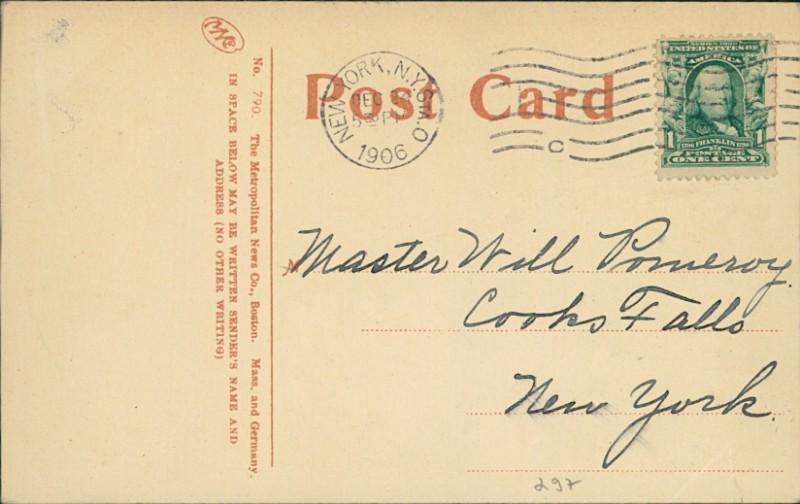 No. 790. The Metropolitan News Co., Boston. Mass. and Germany.
IN SPACE BELOW MAY BE WRITTEN SENDER'S NAME AND
ADDRESS (NO OTHER WRITING)
Post Card
NEW YORK, N.Y.
DEC
1906
C
SERIES 1902
UNITED STATES OF
AMERICA
1 FRANKLIN 1
POSTAGE
ONE CENT
Master Will Pomeroy.
Cooks Falls
New York.
297